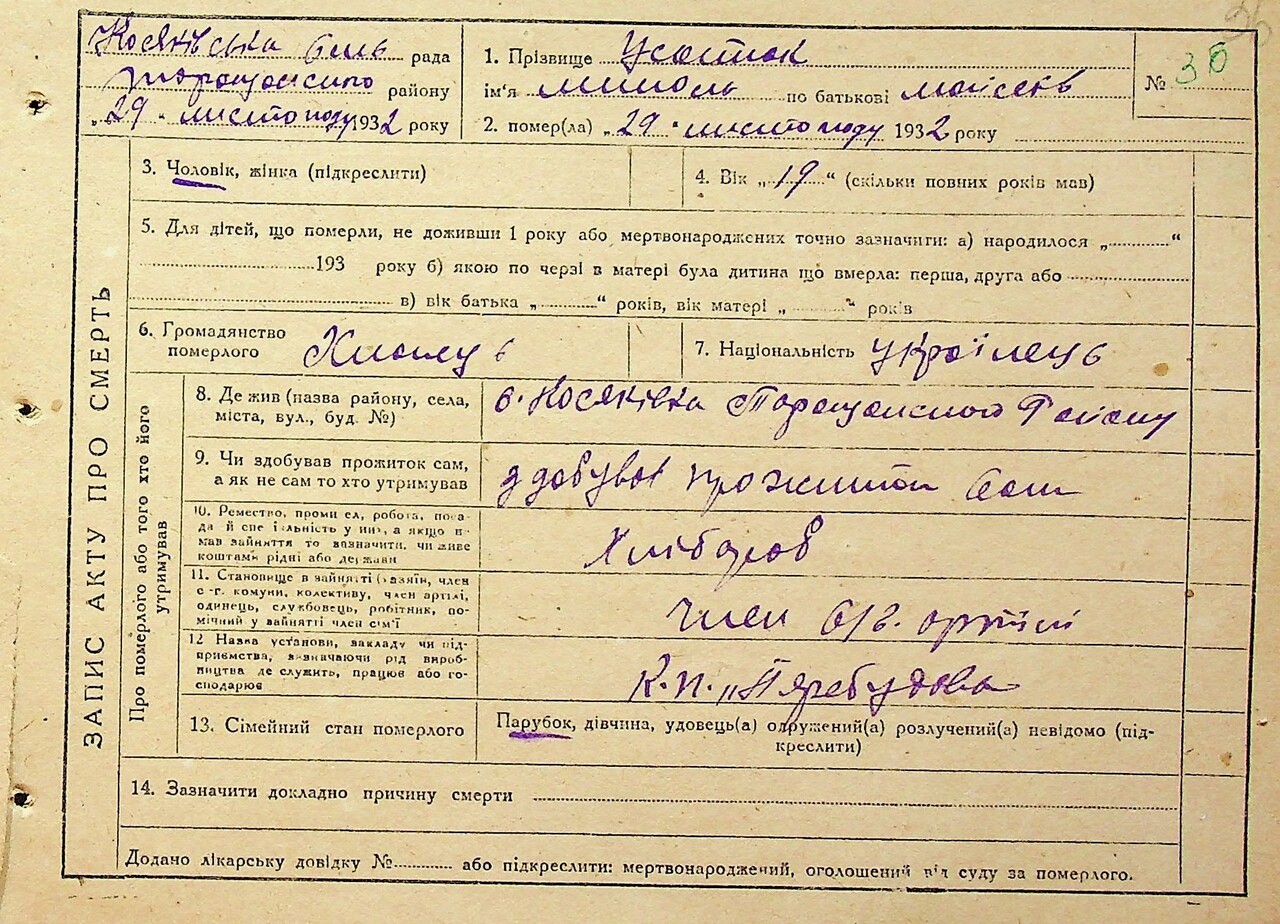 36
Косяківська сіль рада
Таращанского району
„29“ листопаду 1932 року
1. Прізвище Усатюк
ім'я по батькові Мойсеєв
№ 36
2. помер(ла) „29“ листопаду 1932 року
ЗАПИС АКТУ ПРО СМЕРТЬ
3. Чоловік, жінка (підкреслити)
4. Вік „19“ (скільки повних років мав)
5. Для дітей, що померли, не доживши 1 року або мертвонароджених точно зазначити: а) народилося „ “
193 року б) якою по черзі в матері була дитина що вмерла: перша, друга або
в) вік батька „ “ років, вік матері „ “ років
6. Громадянство
померлого
7. Національність Українець
Про померлого або того хто його
утримував
8. Де жив (назва району, села,
міста, вул., буд. №)
с. Косяківка Таращанского Району
9. Чи здобував прожиток сам,
а як не сам то хто утримував
здобував прожиток сам
10. Ремество, промисел, робота, поса-
да й спеціальність у ній, а якщо н-
мав зайняття то вазначити, чи живе
коштами рідні або держави
Хлібороб
11. Становище в зайнятті (хазяїн, член
с-г. комуни, колективу, член артілі,
одинець, службовець, робітник, по-
мічний у вайнятті член сім'ї
Член с/г. артілі
12 Назва установи, закладу чи під-
приємства, вазначаючи рід вироб-
ництва де служить, працює або го-
сподарює
К.П. „Перебудова
13. Сімейний стан померлого
Парубок, дівчина, удовець(а) одружений(а) розлучений(а) невідомо (під-
креслити)
14. Зазначити докладно причину смерти
Додано лікарську довідку № або підкреслити: мертвонароджений, оголошений від суду за померлого.